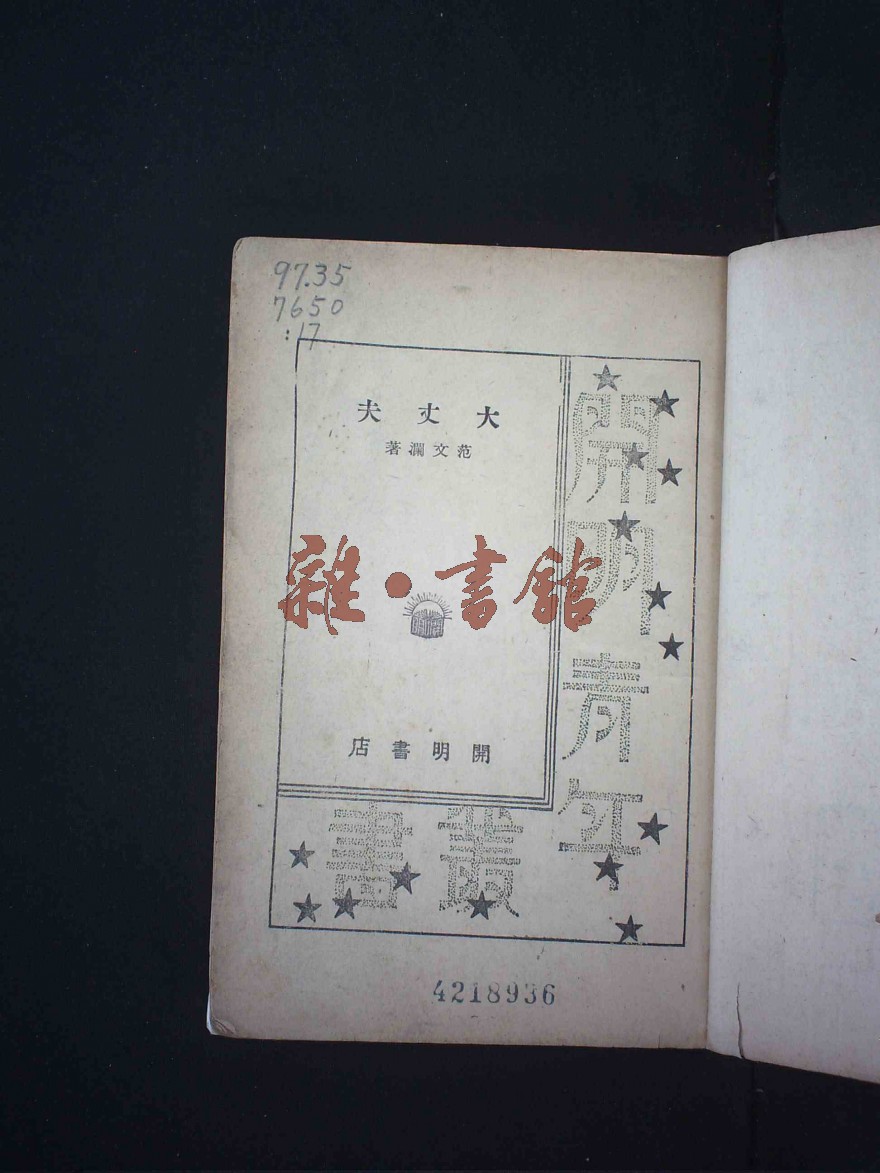 97.35
7650
:17
大丈夫
范文瀾著
雜·書館
開明書店
開明青年
叢書
4218936